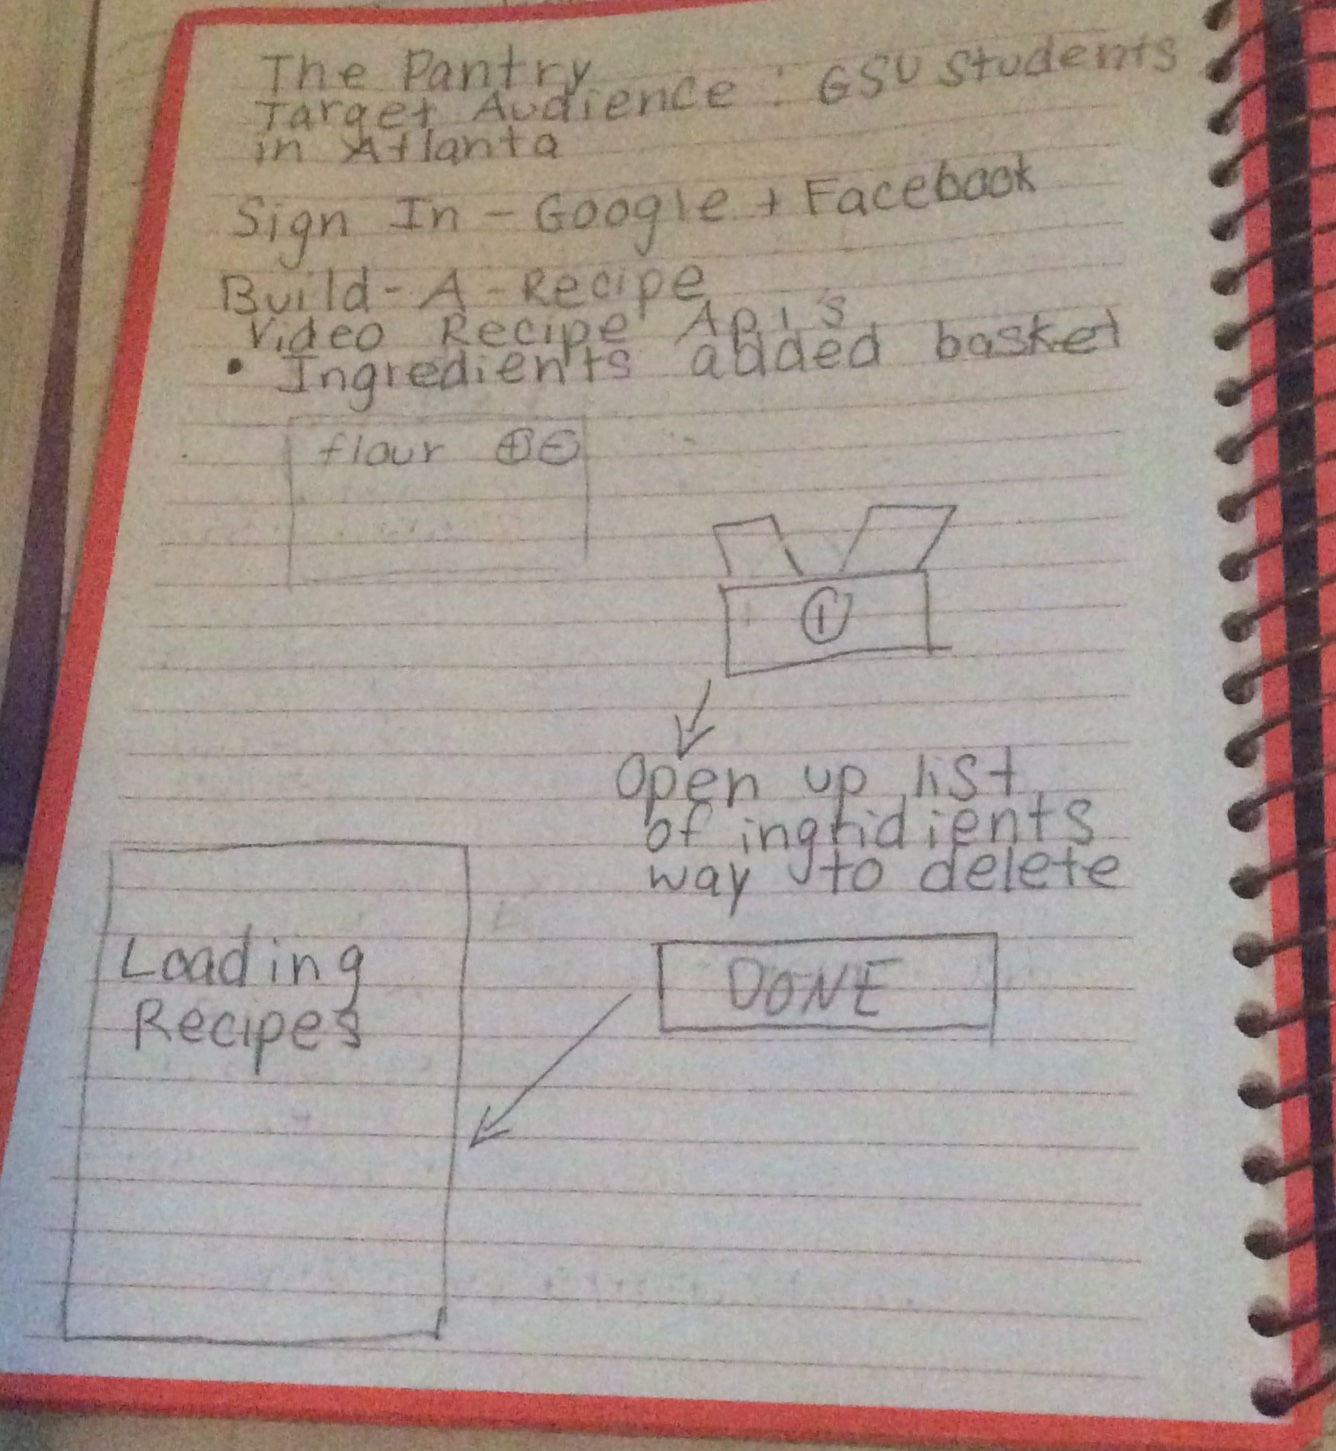 The Pantry
Target Audience : GSU Students
in Atlanta
Sign In - Google + Facebook
Build-A-Recipe
Video Recipe Api's
• Ingredients added basket
flour ⊕⊖
①
Open up list
of ingridients
way to delete
DONE
Loading
Recipes